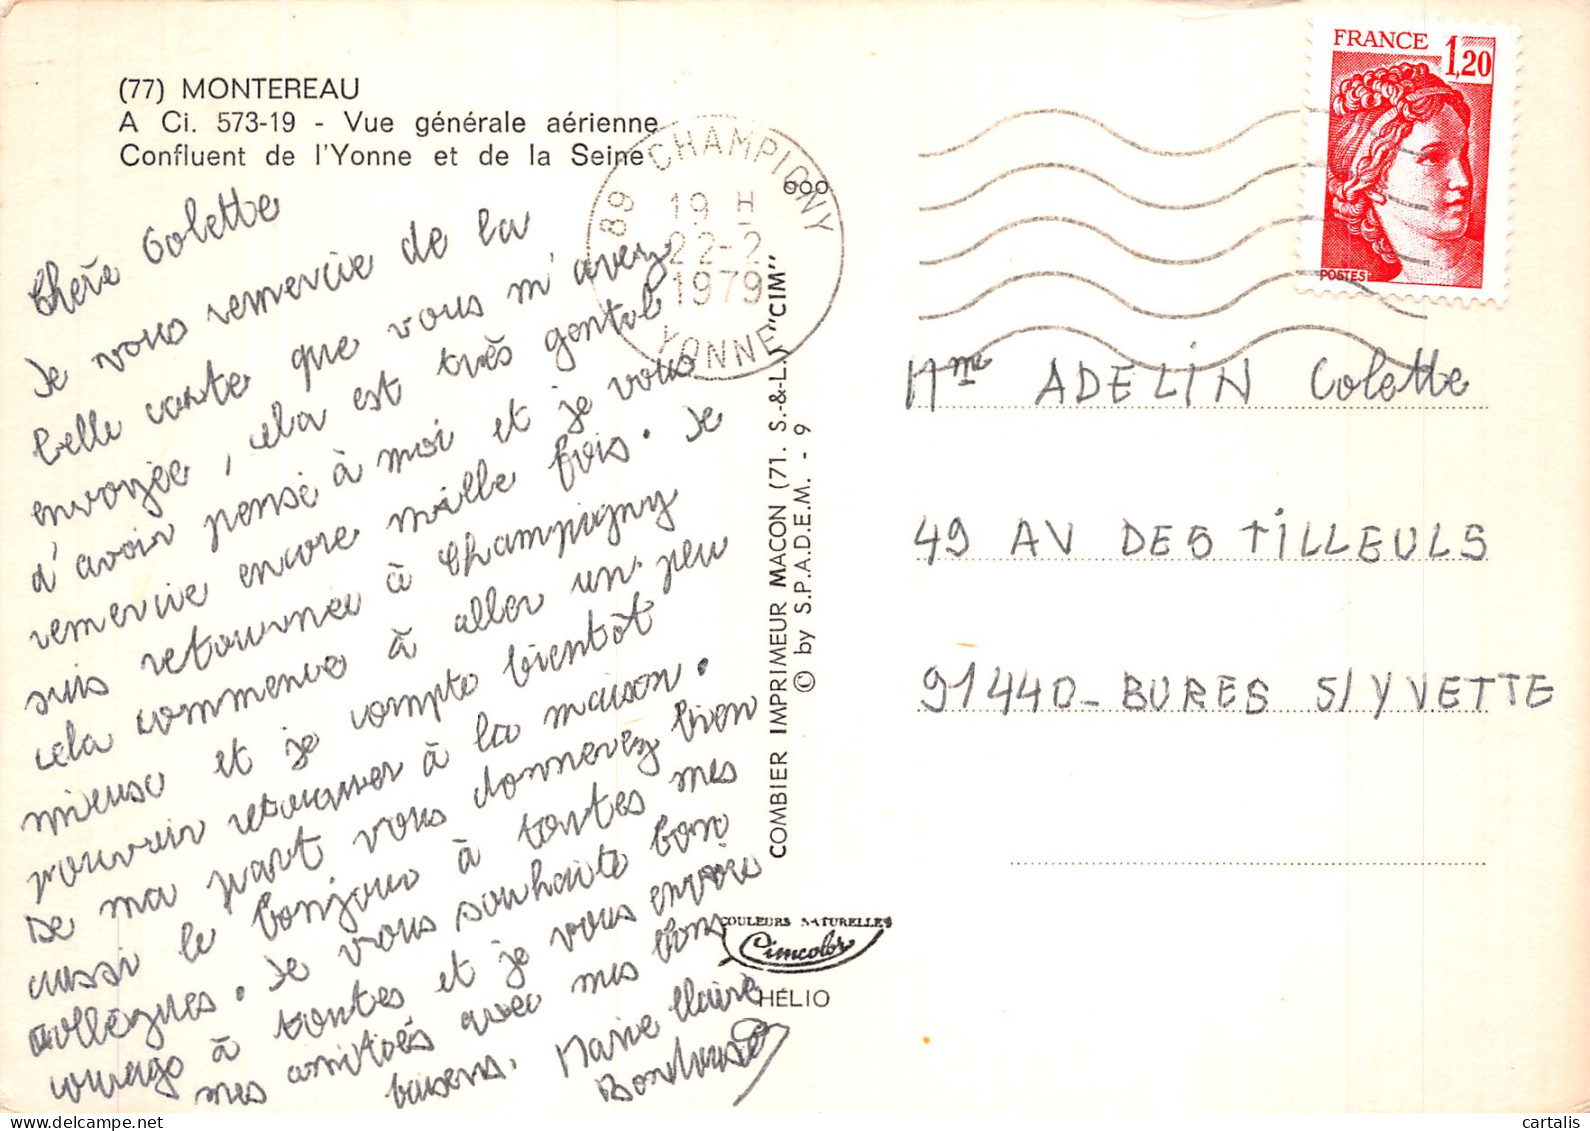 (77) MONTEREAU
A Ci. 573-19 - Vue générale aérienne
Confluent de l'Yonne et de la Seine
Chère Colette
Je vous remercie de la
belle carte que vous m'avez
envoyée, cela est très gentil
d'avoir pensé à moi et je vous
remercie encore mille fois. Je
suis retournée à Champigny
cela commence à aller un peu
mieux et je compte bientôt
pouvoir retourner à la maison.
De ma part vous donnerez bien
aussi le bonjour à toutes mes
collègues. Je vous souhaite bon
courage à toutes et je vous envoie
mes amitiés avec mes bons
baisers. Marie Claire
89 CHAMPIGNY
19 H
22-2
1979
YONNE
ooo
COMBIER IMPRIMEUR MACON (71. S.-&-L.) "CIM"
© by S.P.A.D.E.M. - 9
COULEURS NATURELLES
Cimcolor
HÉLIO
FRANCE 1,20
POSTES
Mme ADELIN Colette
49 AV DES TILLEULS
91440_BURES S/YVETTE
cartalis
cartalis.delcampe.net